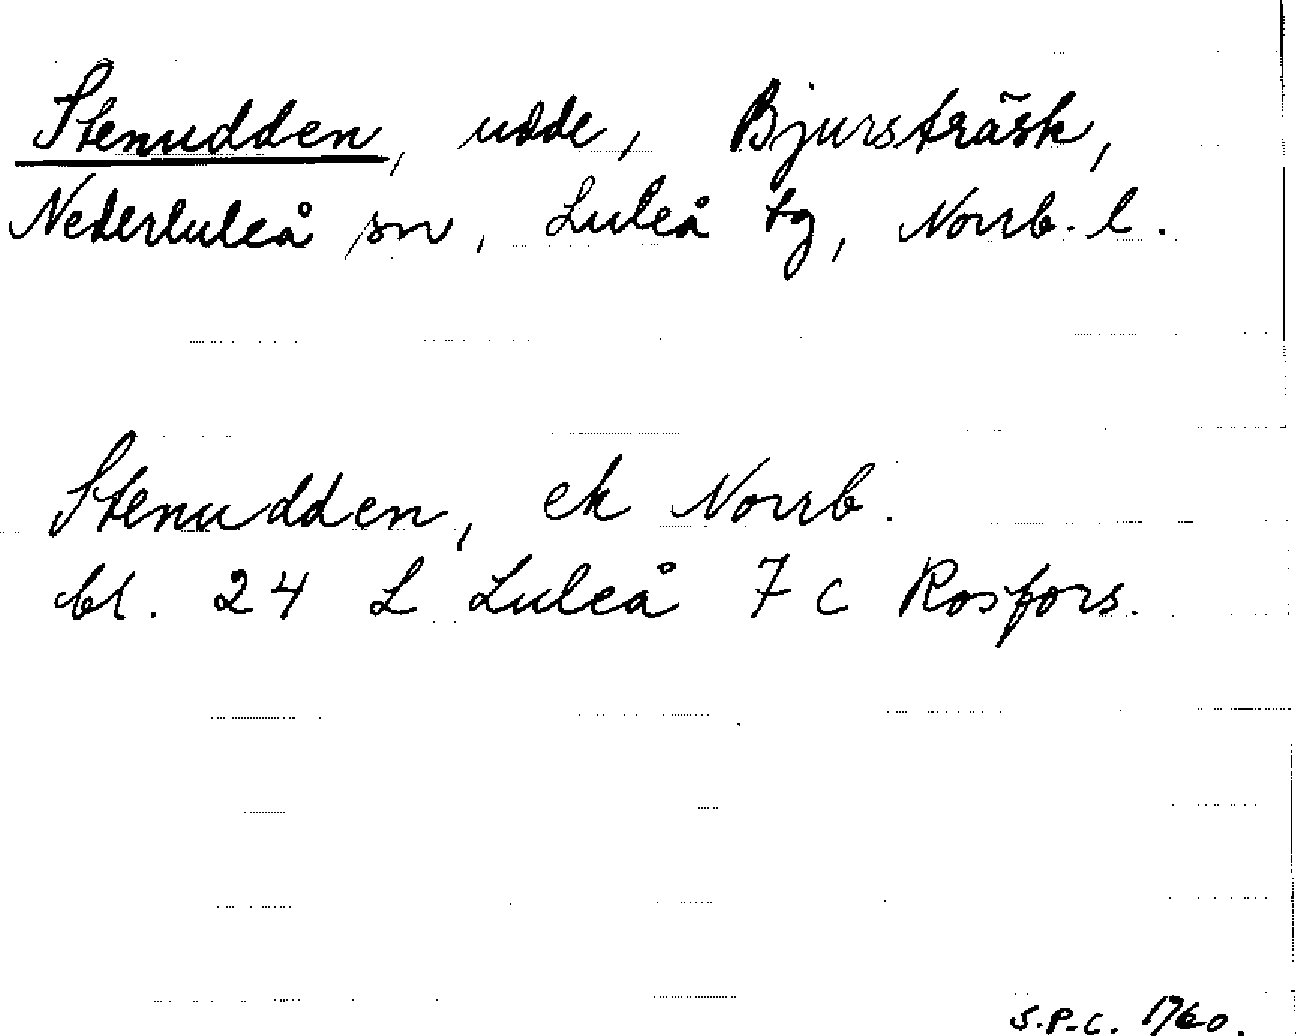 Stenudden, udde, Bjursträsk,
Nederluleå sn, Luleå tg, Norrb. l.
Stenudden, ek Norrb.
bl. 24 L Luleå 7 c Rosfors.
S.P.C. 1760.